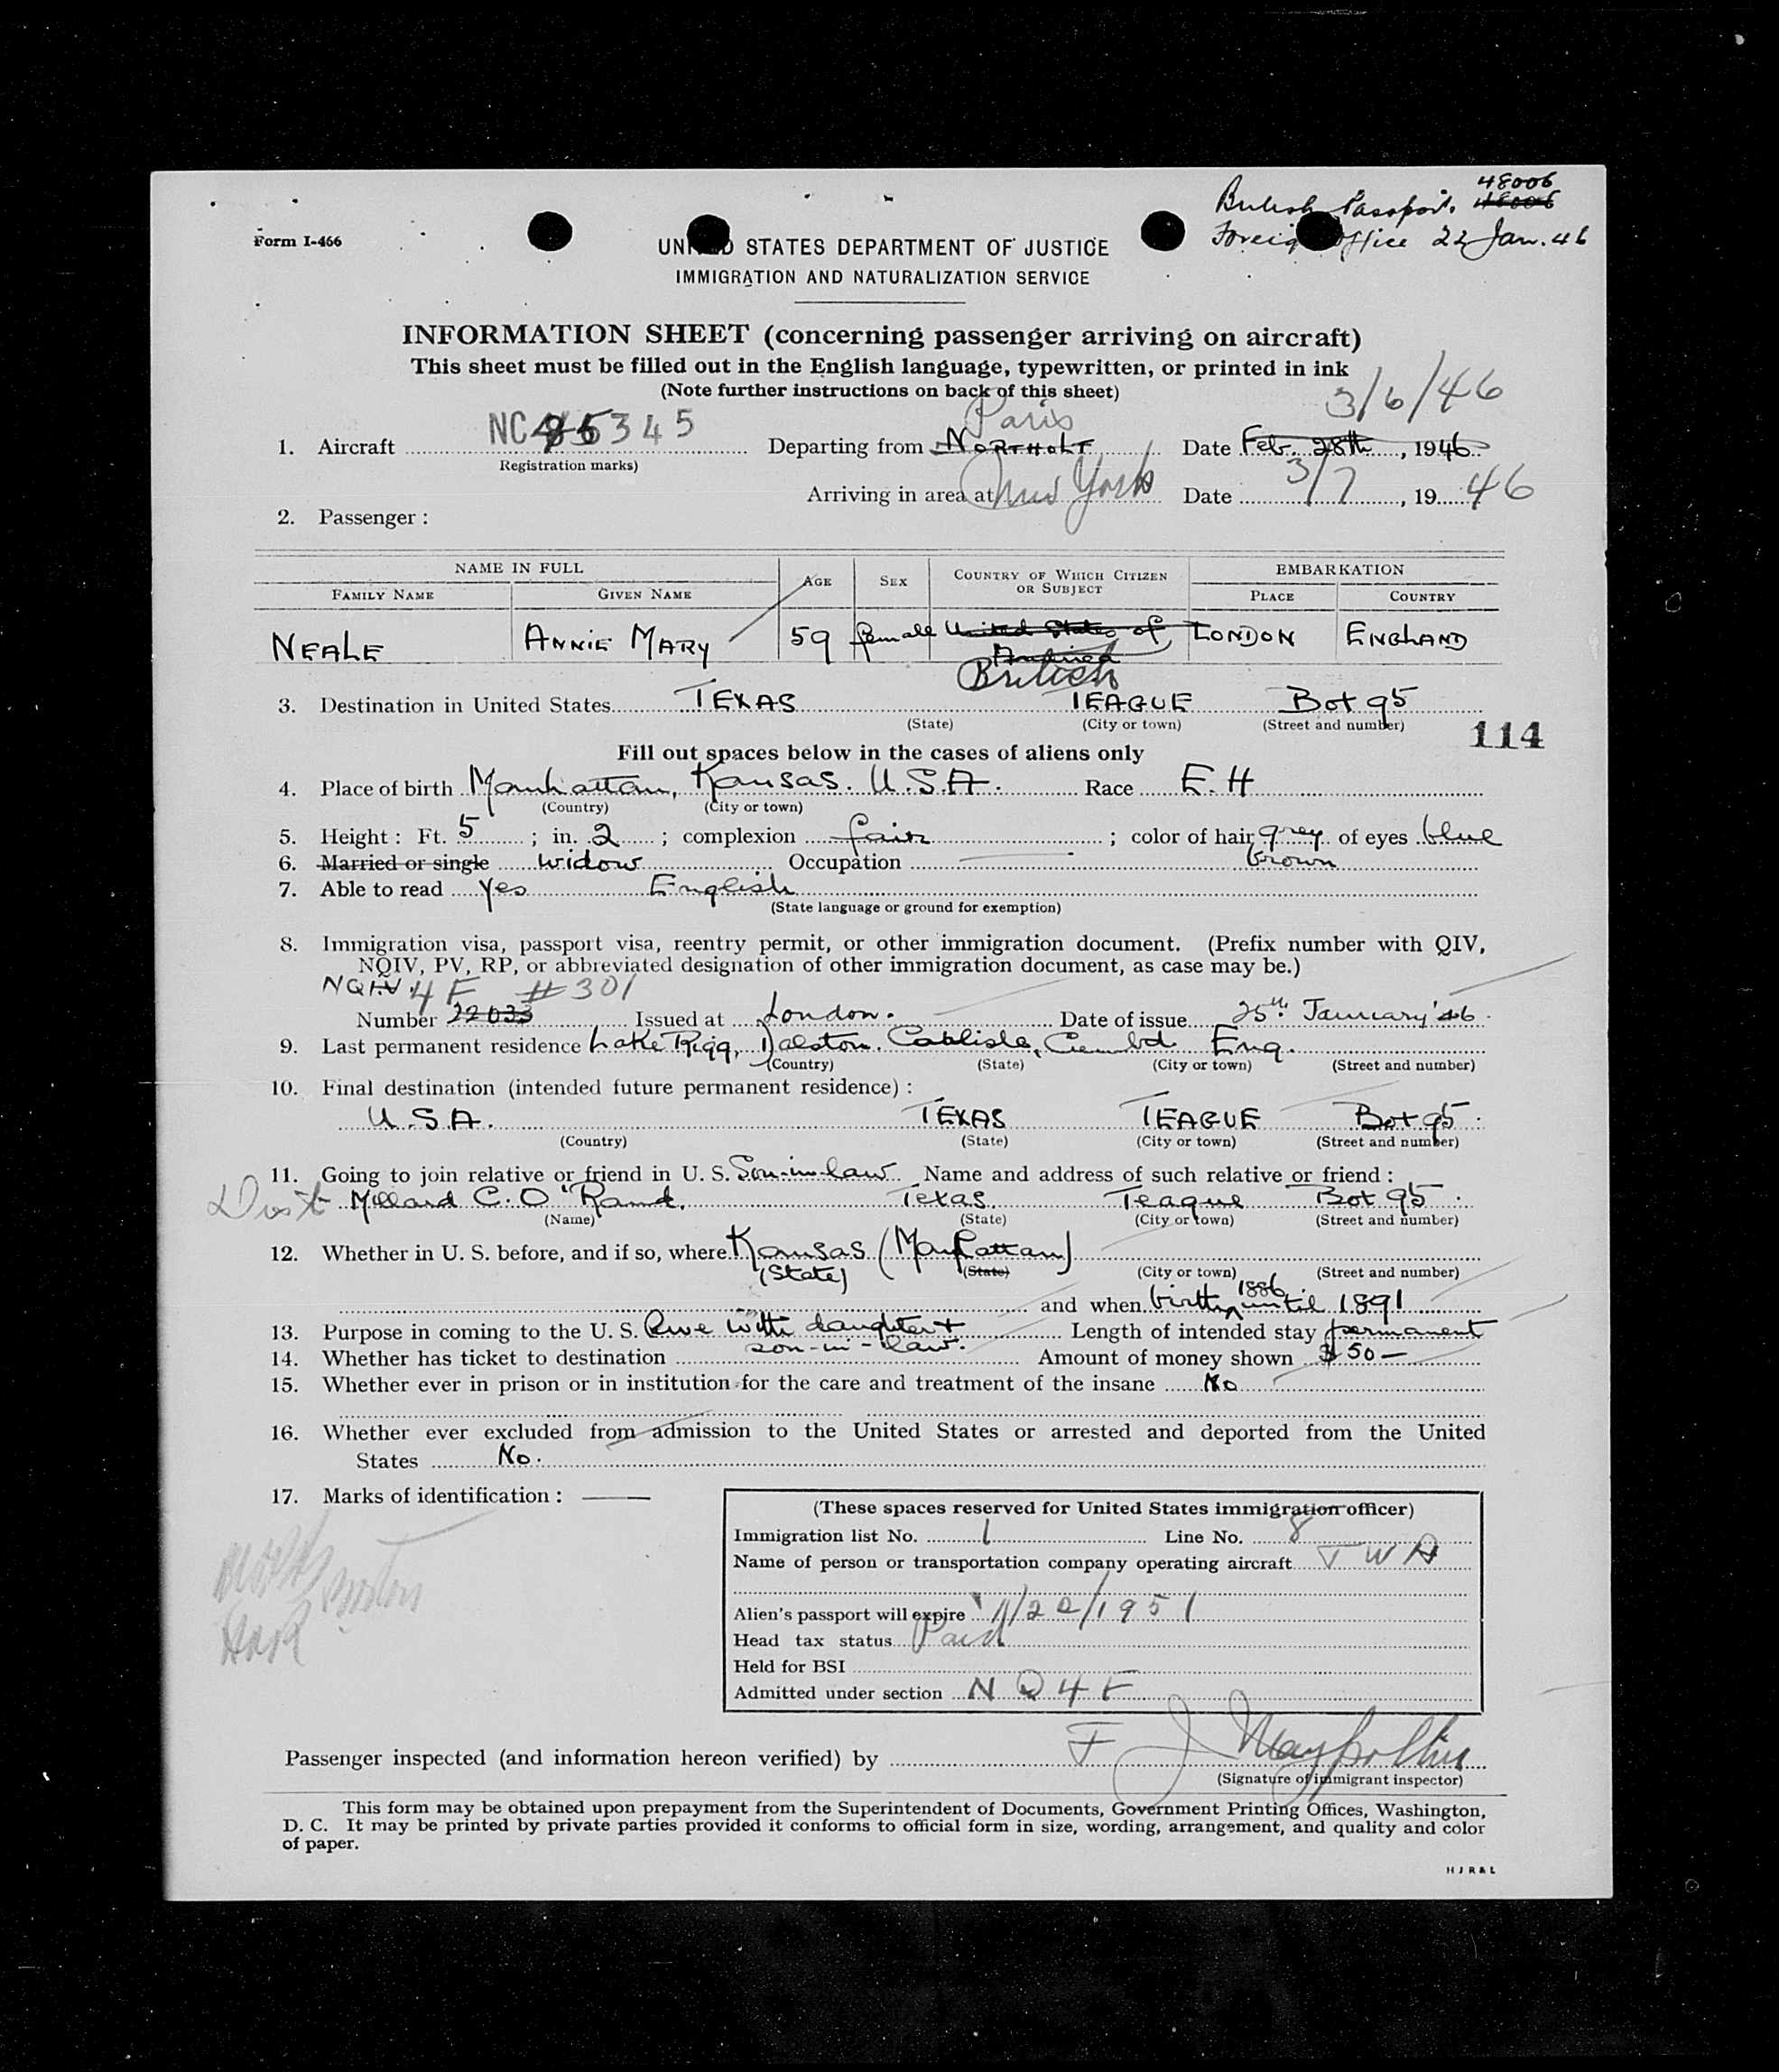 48006
British Passport. 48006
Form I-466
Foreign Office 22 Jan. 46
UNITED STATES DEPARTMENT OF JUSTICE
IMMIGRATION AND NATURALIZATION SERVICE
INFORMATION SHEET (concerning passenger arriving on aircraft)
This sheet must be filled out in the English language, typewritten, or printed in ink
(Note further instructions on back of this sheet)
Paris 3/6/46
1. Aircraft NC 345 Departing from NORTHOLT Date Feb. 28th, 1946
(Registration marks)
Arriving in area at New York Date 3/7, 19 46
2. Passenger:
NAME IN FULL AGE SEX COUNTRY OF WHICH CITIZEN OR SUBJECT EMBARKATION
FAMILY NAME GIVEN NAME PLACE COUNTRY
NEALE ANNIE MARY 59 female United States of America LONDON ENGLAND
British
3. Destination in United States TEXAS TEAGUE Box 95
(State) (City or town) (Street and number)
114
Fill out spaces below in the cases of aliens only
4. Place of birth Manhattan, Kansas. U.S.A. Race E.H
(Country) (City or town)
5. Height: Ft. 5; in. 2; complexion fair; color of hair grey of eyes blue
brown
6. Married or single widow Occupation
7. Able to read Yes English
(State language or ground for exemption)
8. Immigration visa, passport visa, reentry permit, or other immigration document. (Prefix number with QIV,
NQIV, PV, RP, or abbreviated designation of other immigration document, as case may be.)
NQIV. 4F #301
Number 22033 Issued at London. Date of issue 25th January '46.
9. Last permanent residence Lake Rigg, Dalston. Carlisle, Cumbd. Eng.
(Country) (State) (City or town) (Street and number)
10. Final destination (intended future permanent residence):
U.S.A. TEXAS TEAGUE Box 95.
(Country) (State) (City or town) (Street and number)
11. Going to join relative or friend in U. S. Son-in-law Name and address of such relative or friend:
Millard C. O. Rand. Texas. Teague Box 95.
(Name) (State) (City or town) (Street and number)
12. Whether in U. S. before, and if so, where Kansas (Manhattan)
(State) (State) (City or town) (Street and number)
and when birth, 1886 until 1891
13. Purpose in coming to the U. S. Live with daughter + Length of intended stay permanent
son-in-law.
14. Whether has ticket to destination Amount of money shown $50—
15. Whether ever in prison or in institution for the care and treatment of the insane No
16. Whether ever excluded from admission to the United States or arrested and deported from the United
States No.
17. Marks of identification: —
(These spaces reserved for United States immigration officer)
Immigration list No. 1 Line No. 8
Name of person or transportation company operating aircraft TWA
Alien's passport will expire 1/22/1951
Head tax status Paid
Held for BSI
Admitted under section NQ4F
Passenger inspected (and information hereon verified) by F J
(Signature of immigrant inspector)
This form may be obtained upon prepayment from the Superintendent of Documents, Government Printing Offices, Washington,
D. C. It may be printed by private parties provided it conforms to official form in size, wording, arrangement, and quality and color
of paper.
H J R & L